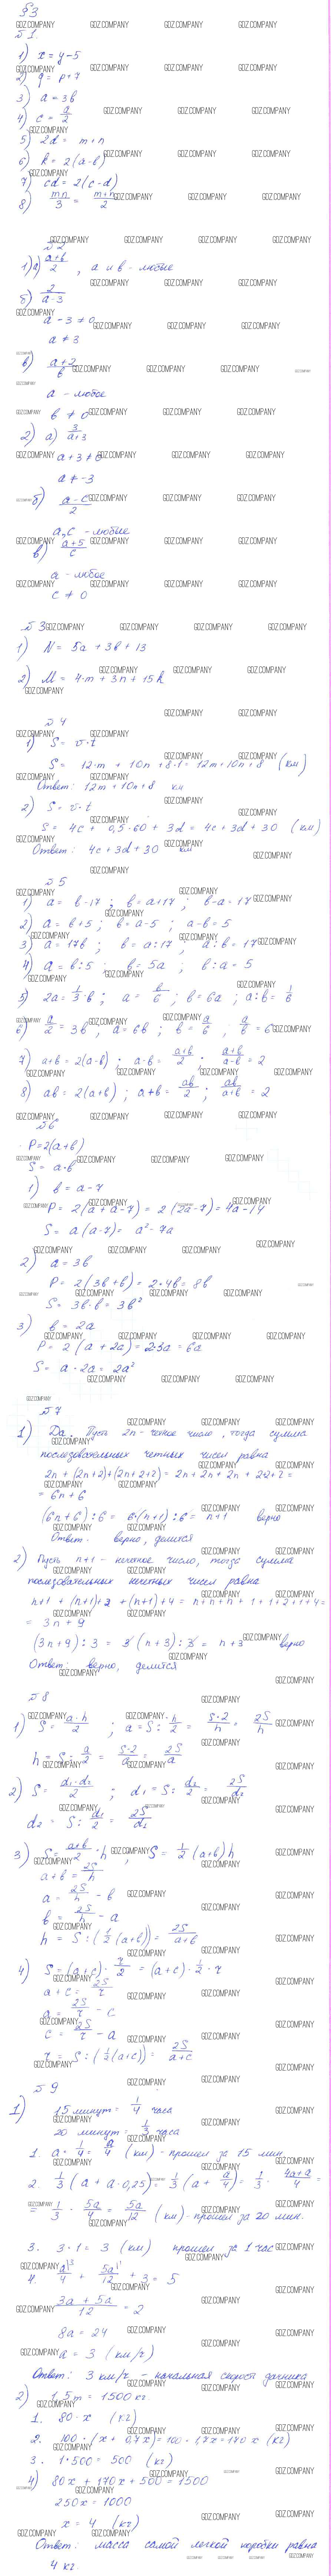 §3
№1.
1) x = y - 5
2) q = p + 7
3) a = 3b
4) c = a/2
5) 2d = m + n
6) k = 2(a-b)
7) cd = 2(c-d)
8) mn/3 = (m+n)/2
№2
1) а) (a+b)/2, a и b - любые
б) 2/(a-3)
a - 3 ≠ 0
a ≠ 3
в) (a+2)/b
a - любое
b ≠ 0
2) а) 3/(a+3)
a + 3 ≠ 0
a ≠ -3
б) (a-c)/2
a, c - любые
в) (a+5)/c
a - любое
c ≠ 0
№3
1) N = 5a + 3b + 13
2) M = 4·m + 3n + 15k
№4
1) S = v·t
S = 12·m + 10n + 8·1 = 12m + 10n + 8 (км)
Ответ: 12m + 10n + 8 км
2) S = v·t
S = 4c + 0,5·60 + 3d = 4c + 3d + 30 (км)
Ответ: 4c + 3d + 30 км
№5
1) a = b - 17; b = a + 17; b - a = 17
2) a = b + 5; b = a - 5; a - b = 5
3) a = 17b; b = a : 17; a : b = 17
4) a = b : 5; b = 5a; b : a = 5
5) 2a = 1/3·b; a = b/6; b = 6a; a : b = 1/6
6) a/2 = 3b; a = 6b; b = a/6; a/b = 6
7) a+b = 2(a-b); a-b = (a+b)/2; (a+b)/(a-b) = 2
8) ab = 2(a+b); a+b = ab/2; ab/(a+b) = 2
№6
P = 2(a+b)
S = a·b
1) b = a - 7
P = 2(a + a - 7) = 2(2a - 7) = 4a - 14
S = a(a-7) = a² - 7a
2) a = 3b
P = 2(3b + b) = 2·4b = 8b
S = 3b·b = 3b²
3) b = 2a
P = 2(a + 2a) = 2·3a = 6a
S = a·2a = 2a²
№7
1) Да. Пусть 2n - четное число, тогда сумма
последовательных четных чисел равна
2n + (2n+2) + (2n+2+2) = 2n + 2n + 2n + 2+2+2 =
= 6n + 6
(6n+6) : 6 = 6·(n+1) : 6 = n+1 верно
Ответ: верно, делится
2) Пусть n+1 - нечетное число, тогда сумма
последовательных нечетных чисел равна
n+1 + (n+1)+2 + (n+1)+4 = n+n+n+1+1+2+1+4 =
= 3n + 9
(3n+9) : 3 = 3(n+3) : 3 = n+3 верно
Ответ: верно, делится
№8
1) S = a·h/2; a = S : h/2 = S·2/h = 2S/h
h = S : a/2 = S·2/a = 2S/a
2) S = d₁·d₂/2; d₁ = S : d₂/2 = 2S/d₂
d₂ = S : d₁/2 = 2S/d₁
3) S = (a+b)/2·h; S = 1/2(a+b)h
a+b = 2S/h
a = 2S/h - b
b = 2S/h - a
h = S : (1/2(a+b)) = 2S/(a+b)
4) S = (a+c)·r/2 = (a+c)·1/2·r
a+c = 2S/r
a = 2S/r - c
c = 2S/r - a
r = S : (1/2(a+c)) = 2S/(a+c)
№9
1) 15 минут = 1/4 часа
20 минут = 1/3 часа
1. a·1/4 = a/4 (км) - прошел за 15 мин
2. 1/3(a + a·0,25) = 1/3(a + a/4) = 1/3·(4a+a)/4 =
= 1/3·5a/4 = 5a/12 (км) - прошел за 20 мин.
3. 3·1 = 3 (км) прошел за 1 час
4. a/4 + 5a/12 + 3 = 5
(3a + 5a)/12 = 2
8a = 24
a = 3 (км/ч)
Ответ: 3 км/ч - начальная скорость дачника
2) 1,5т = 1500 кг.
1. 80·x (кг)
2. 100·(x + 0,7x) = 100·1,7x = 170x (кг)
3. 1·500 = 500 (кг)
4) 80x + 170x + 500 = 1500
250x = 1000
x = 4 (кг)
Ответ: масса самой легкой коробки равна
4 кг
GDZ.COMPANY